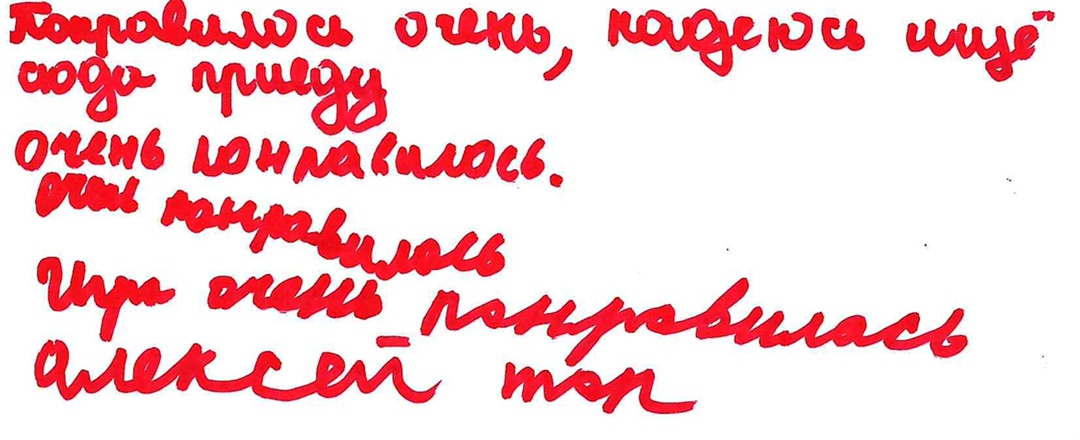 Понравилось очень, надеюсь ищё
сюда приеду
очень понравилось.
очень понравилось
Игра очень понравилась
Алексей топ